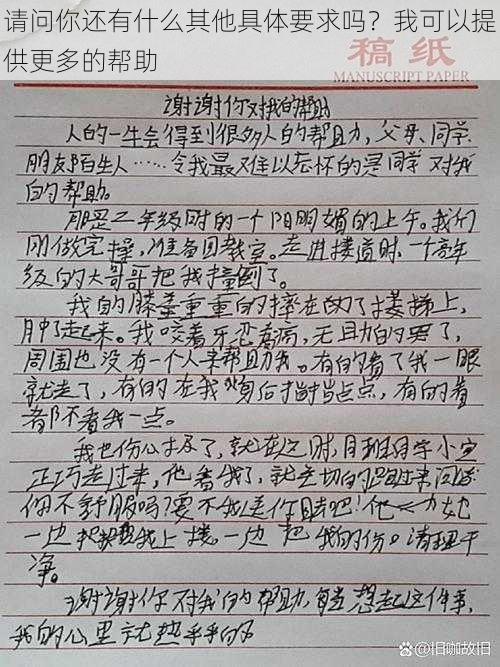 请问你还有什么其他具体要求吗？我可以提
供更多的帮助
稿纸
MANUSCRIPT PAPER
谢谢你对我的帮助
人的一生会得到很多人的帮助，父母、同学、
朋友陌生人……令我最难以忘怀的是同学对我
的帮助。
那是二年级时的一个阳明媚的上午。我们
刚做完操，准备回教室。走进楼道时，一个高年
级的大哥哥把我撞倒了。
我的膝盖重重的摔在的了楼梯上，
肿了起来。我咬着牙忍着痛，无助的哭了，
周围也没有一个人来帮助我。有的看了我一眼
就走了，有的在我背后指指点点，有的看
都不看我一点。
我也伤心极了，就在这时，同班同学小宜
正巧走过来，他看我了，就关切的跑过来问
你不舒服吗？要不我送你
一边扶我上楼。一边把我的伤口清理干
净。
谢谢你对我的帮助，每当想起这件事，
我的心里就热乎乎的
@旧咖故旧